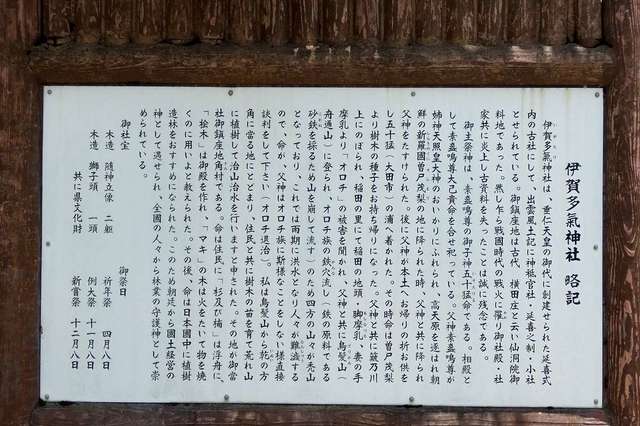 伊賀多氣神社 略記
伊賀多氣神社は、垂仁天皇の御代に創建せられた延喜式
内の古社にして、出雲風土記に神祗官社・延喜之制・小社
とせられている。御鎮座地は古代、横田庄と云い仙洞院御
料地であった。然し乍ら戦國時代の戦火に罹り御社殿・社
家共に炎上し古資料を失ったことは誠に残念である。
御主祭神は、素盞鳴尊の御子神五十猛命である。相殿と
して素盞鳴尊大己貴命を合せ祀っている。父神素盞鳴尊が
姉神天照皇大神のおいかりにふれられ、高天原を逐はれ朝
鮮の新羅國曽尸茂梨の地に降られた時、父神と共に降られ
父神をたすけられた。後に父神が本土へお帰りの折お供を
し五十猛(大田市)の浦へ着かれた。その時命は曽尸茂梨
より樹木の種子をお持ち帰りになった。父神と共に簸乃川
上にのぼられ、稲田の里にて稲田の地頭、脚摩乳、妻の手
摩乳より「オロチ」の被害を聞かれ、父神と共に鳥髪山(
舟通山)に登られ、オロチ族の鉄穴流し(鉄の原料である
砂鉄を採るため山を崩して流す)のため四方の山々が禿山
となっており、これでは雨期に洪水となり人々が難澁する
ので、命が、父神はオロチ族に斯様なことをしない様直接
談判をして下さい(オロチ退治)。私は鳥髪山から乾の方
角に當る地にとどまり、住民と共に樹木の苗を育て荒れ山
に植樹して治山治水を行いますと申された。その地が御當
社御鎮座地角村である。命は住民に「杉及び楠」は浮舟に、
「桧木」は御殿を作れ、「マキ」の木は火をたいて物を焼
くのに用いよと教えられた。その後、命は日本國中に植樹
造林をおすすめになられた。このため朝廷から國土経営の
神として遇せられ、全國の人々から林業の守護神として崇
められている。
御社宝
木造 随神立像 二躯
木造 獅子頭 一頭
共に県文化財
御祭日
祈年祭 四月八日
例大祭 十一月八日
新嘗祭 十二月八日